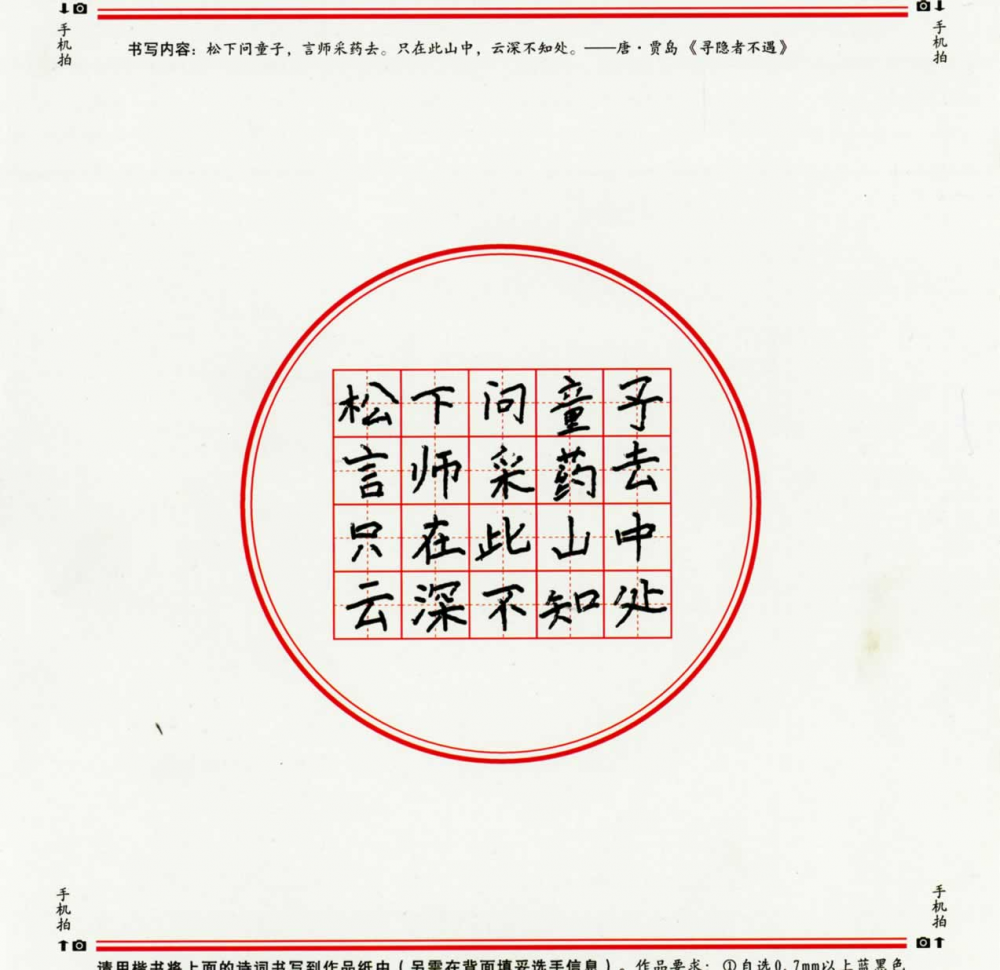 手机拍
手机拍
书写内容：松下问童子，言师采药去。只在此山中，云深不知处。——唐·贾岛《寻隐者不遇》
松下问童子
言师采药去
只在此山中
云深不知处
手机拍
手机拍
请用楷书将上面的诗词书写到作品纸中（另需在背面填妥选手信息）。作品要求：①自选0.7mm以上蓝黑色